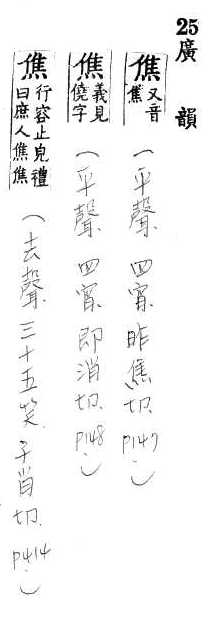 25廣韻
僬 又音焦 (平聲 四宵 昨焦切. P147.)
僬 義見僥字 (平聲 四宵 即消切. P148.)
僬 行容止皃禮曰庶人僬僬 (去聲 三十五笑. 子肖切. P414.)